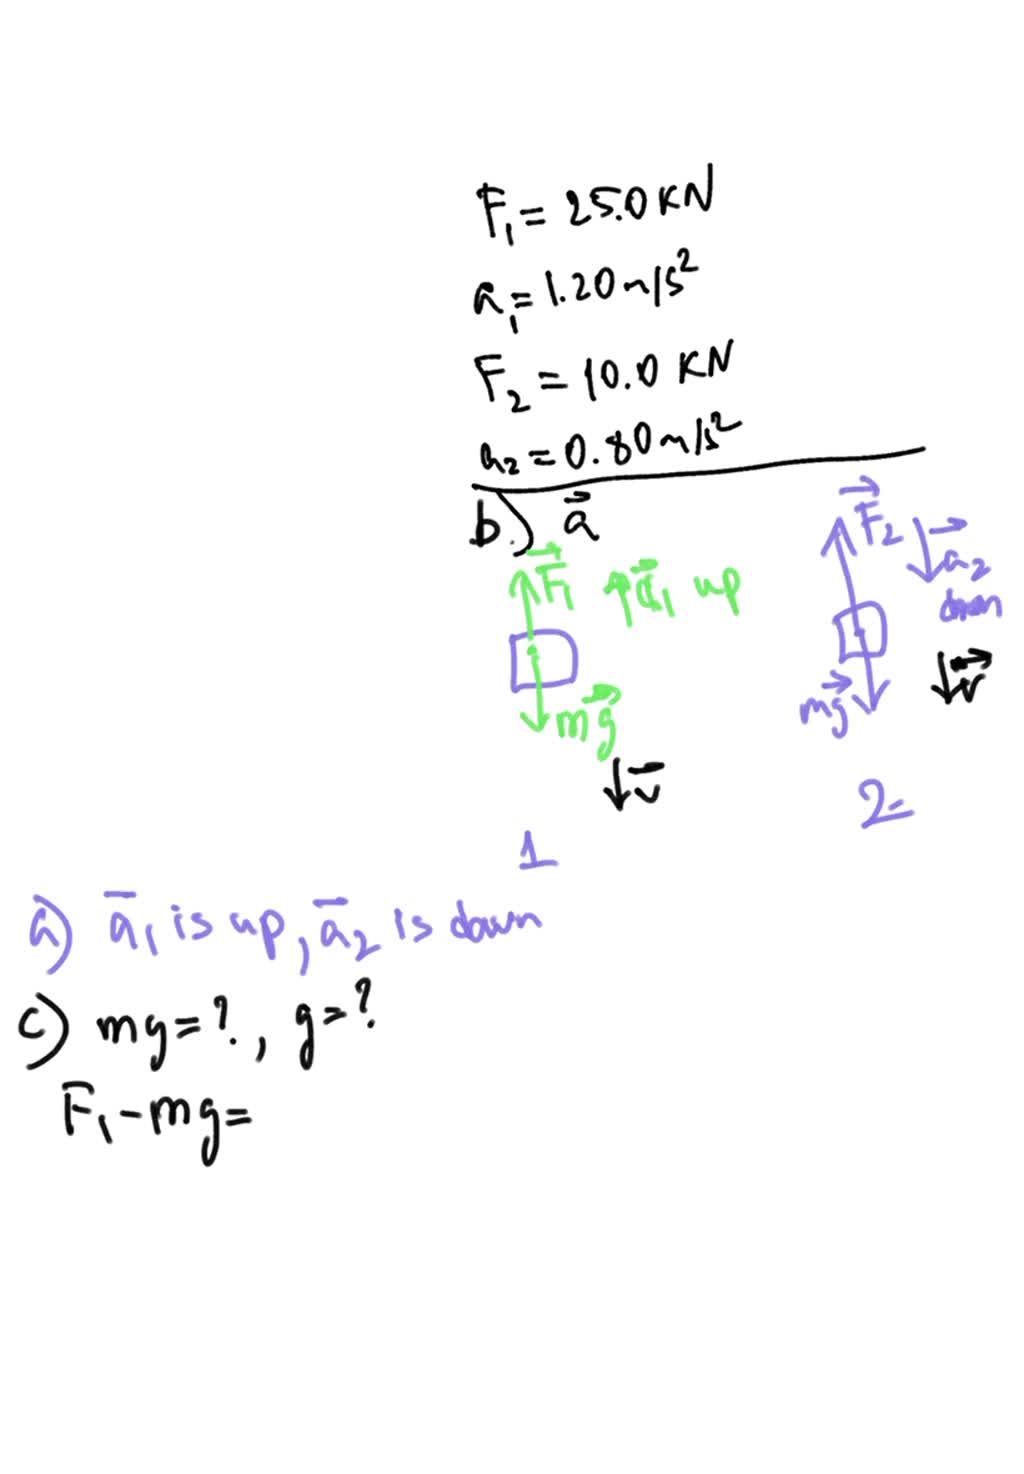 F₁ = 25.0 KN
a₁ = 1.20 m/s²
F₂ = 10.0 KN
a₂ = 0.80 m/s²
b.) a⃗
F⃗₁ a⃗₁ up
mg⃗
v⃗
1
F⃗₂ a⃗₂
down
mg⃗ v⃗
2
a) a̅₁ is up, a̅₂ is down
c) mg = ?, g = ?
F₁ - mg =